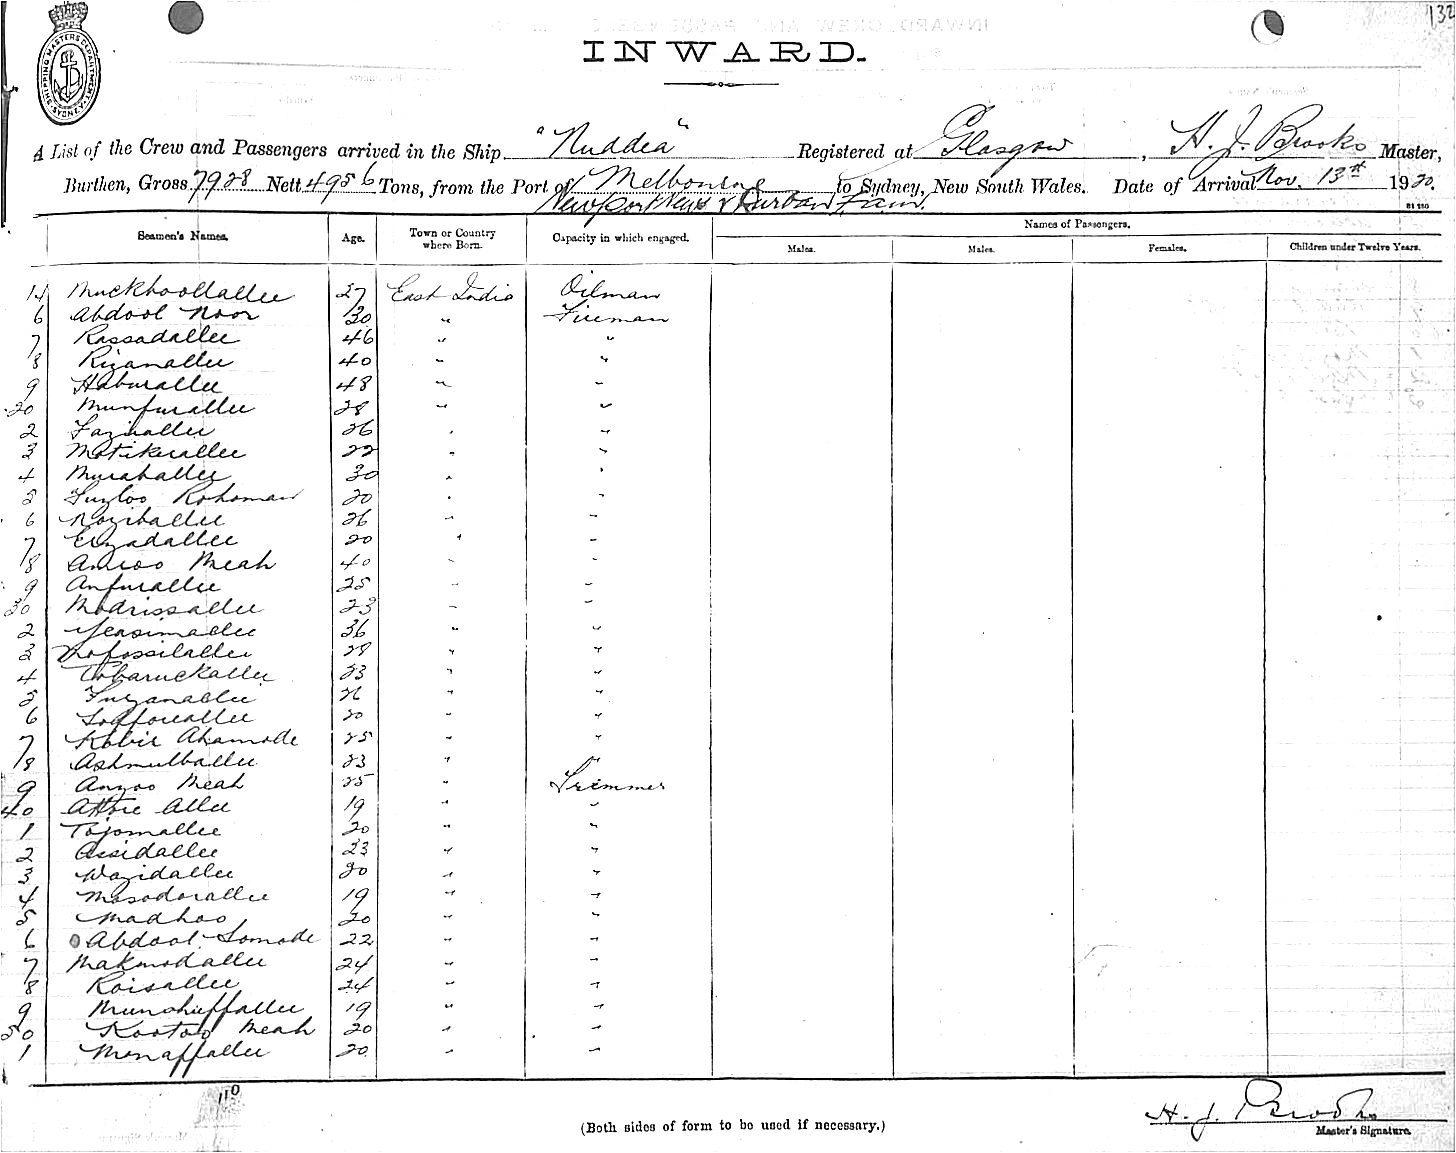 132
SHIPPING MASTERS DEPARTMENT SYDNEY
INWARD.
A List of the Crew and Passengers arrived in the Ship "Nuddea" Registered at Glasgow, H. J. Brooks Master,
Burthen, Gross 7928 Nett 4956 Tons, from the Port of Melbourne to Sydney, New South Wales. Date of Arrival Nov. 13th 1920.
Newport News & Durban
Seamen's Names. Age. Town or Country where Born. Capacity in which engaged. Names of Passengers.
Males. Males. Females. Children under Twelve Years.
Muckboollallee 27 East India Oilman
6 Abdool Noor 30 " Fireman
7 Rassadallee 46 " "
8 Rizanallee 40 " "
9 Haburallee 48 " "
20 Munfurallee 28 " "
2 Fazirallee 26 " "
3 Motikurallee 22 " "
4 Murahallee 30 " "
5 Fuzloo Rohoman 20 " "
6 Noziballee 26 " "
7 Erzadallee 20 " "
8 Amroo Meah 40 " "
9 Anfurallee 25 " "
30 Modrissallee 23 " "
2 Yeasimallee 36 " "
3 Mofossilallee 28 " "
4 Tobaruckallee 23 " "
5 Fuzanallee " "
6 20 " "
7 Kobir Ahamode 25 " "
8 Ashmutballee 23 " "
9 Anzoo Meah 25 " Trimmer
40 Attor Allee 19 " "
1 Tojomallee 20 " "
2 Assidallee 23 " "
3 Wazidallee 20 " "
4 Mosodorallee 19 " "
5 Madhoo 20 " "
6 Abdool Somode 22 " "
7 Makmodallee 24 " "
8 Roisallee 24 " "
9 Munshieffallee 19 " "
50 Kootoo Meah 20 " "
1 Monaffallee 20 " "
110
H. J. Brooks
Master's Signature.
(Both sides of form to be used if necessary.)